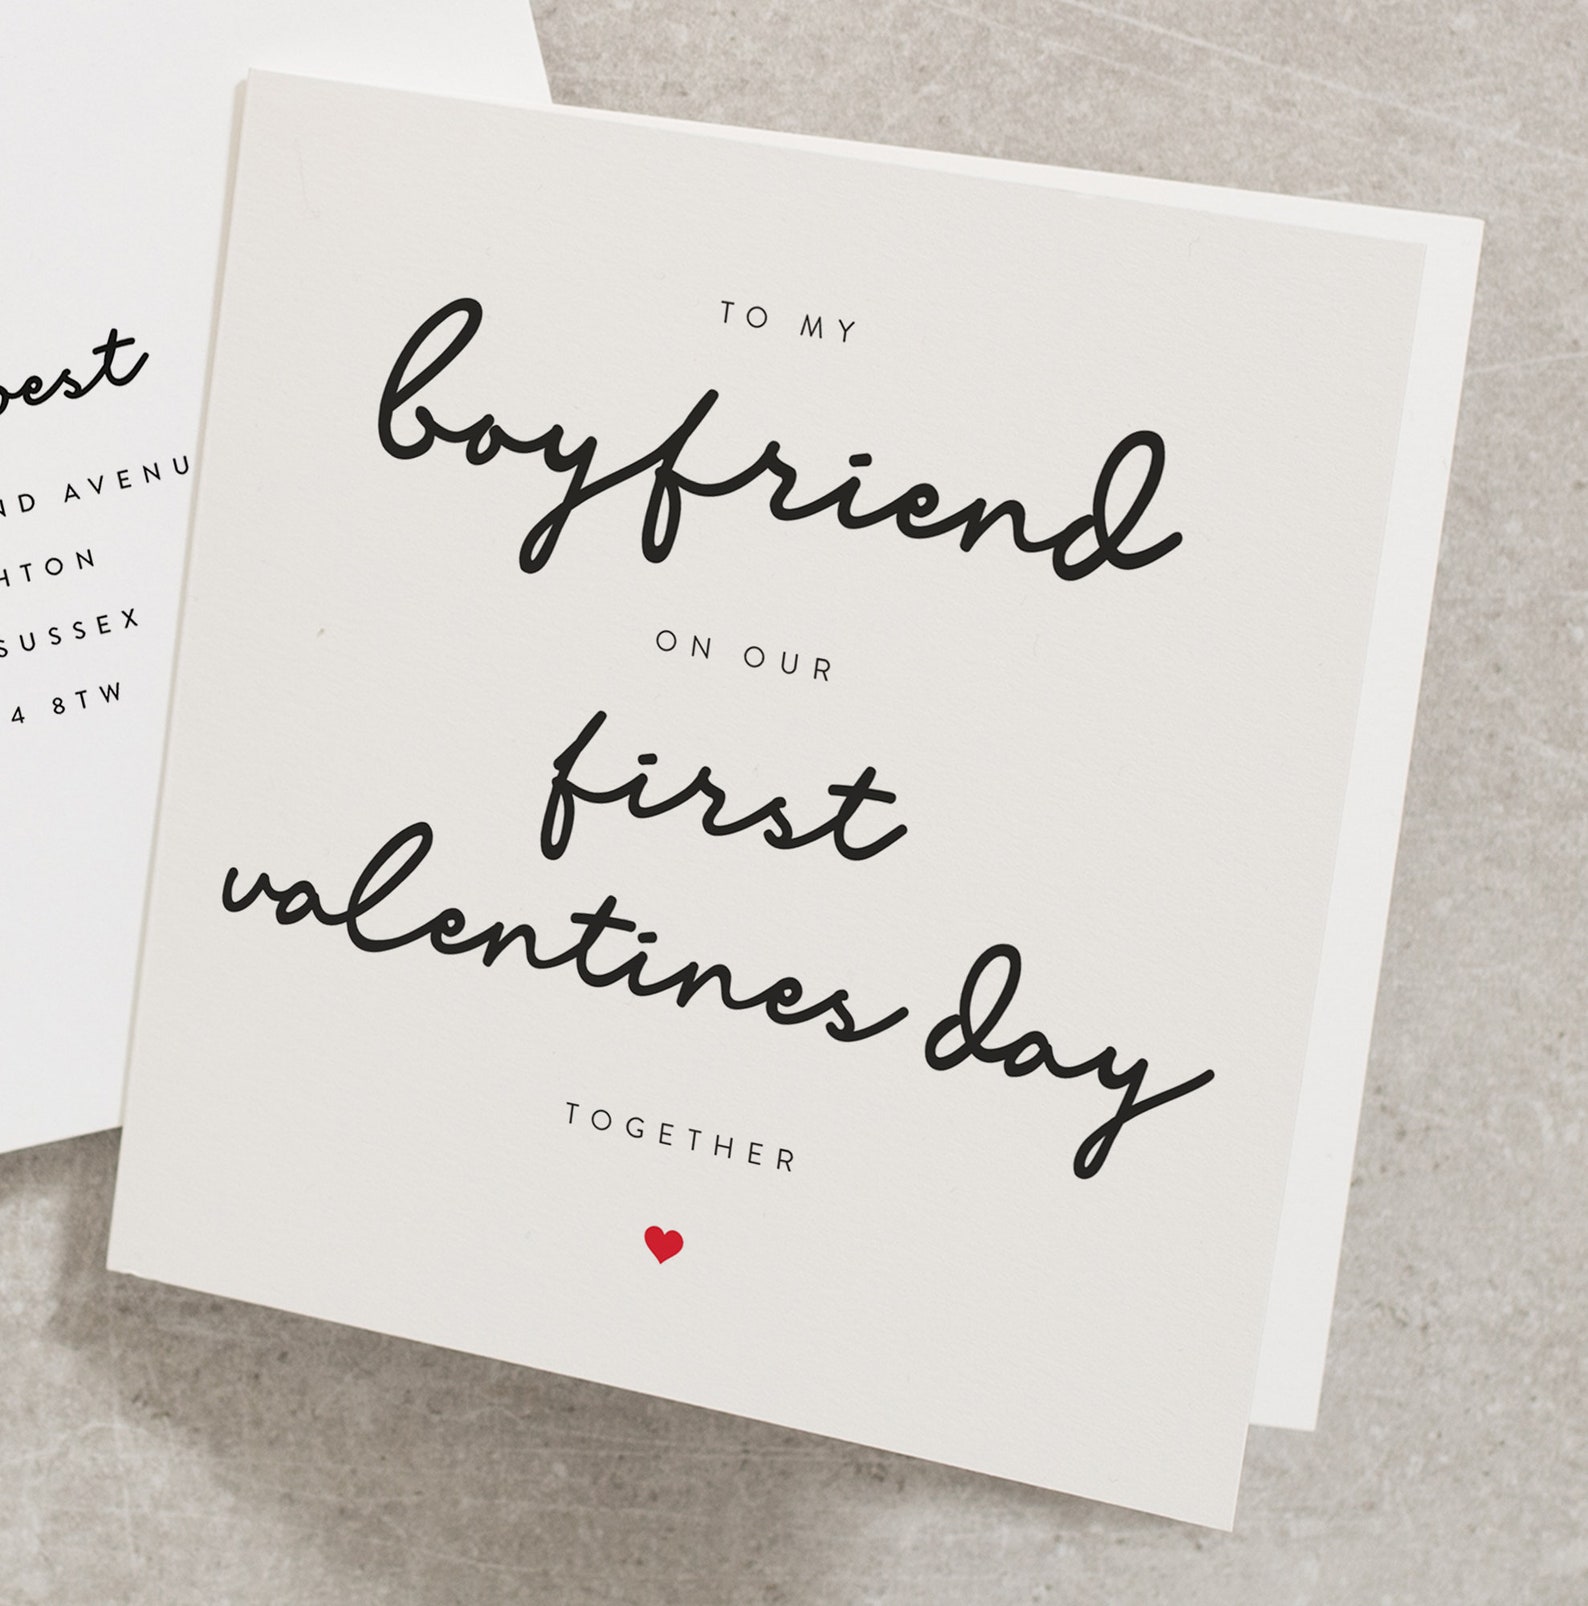 TO MY
boyfriend
ON OUR
first
valentines day
TOGETHER
best
AVENU
SUSSEX
4 8TW